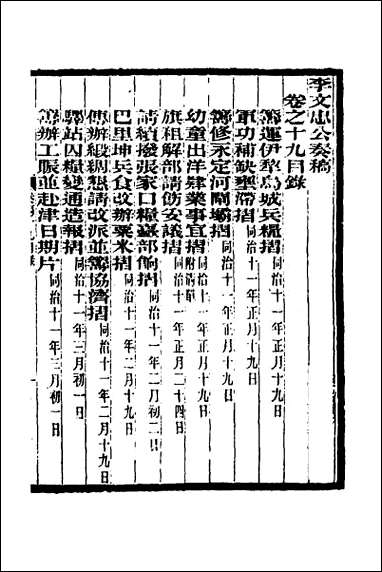 李文忠公奏稿
卷之十九目錄
籌運伊犂烏城兵糧摺 同治十一年正月十九日
軍功補缺壅滯摺 同治十一年正月十九日
籌修永定河閘壩摺 同治十一年正月十九日
幼童出洋肄業事宜摺 附淸單 同治十一年正月十九日
旗租解部請飭妥議摺 同治十一年正月二十四日
請續撥張家口糧臺部餉摺 同治十一年二月初二日
巴里坤兵食改辦粟米摺 同治十一年二月十九日
傳辦緞綢懇請改派並籌協濟摺 同治十一年二月十九日
驛站囚糧變通造報摺 同治十一年三月初一日
籌辦工賑並赴津日期片 同治十一年三月初一日